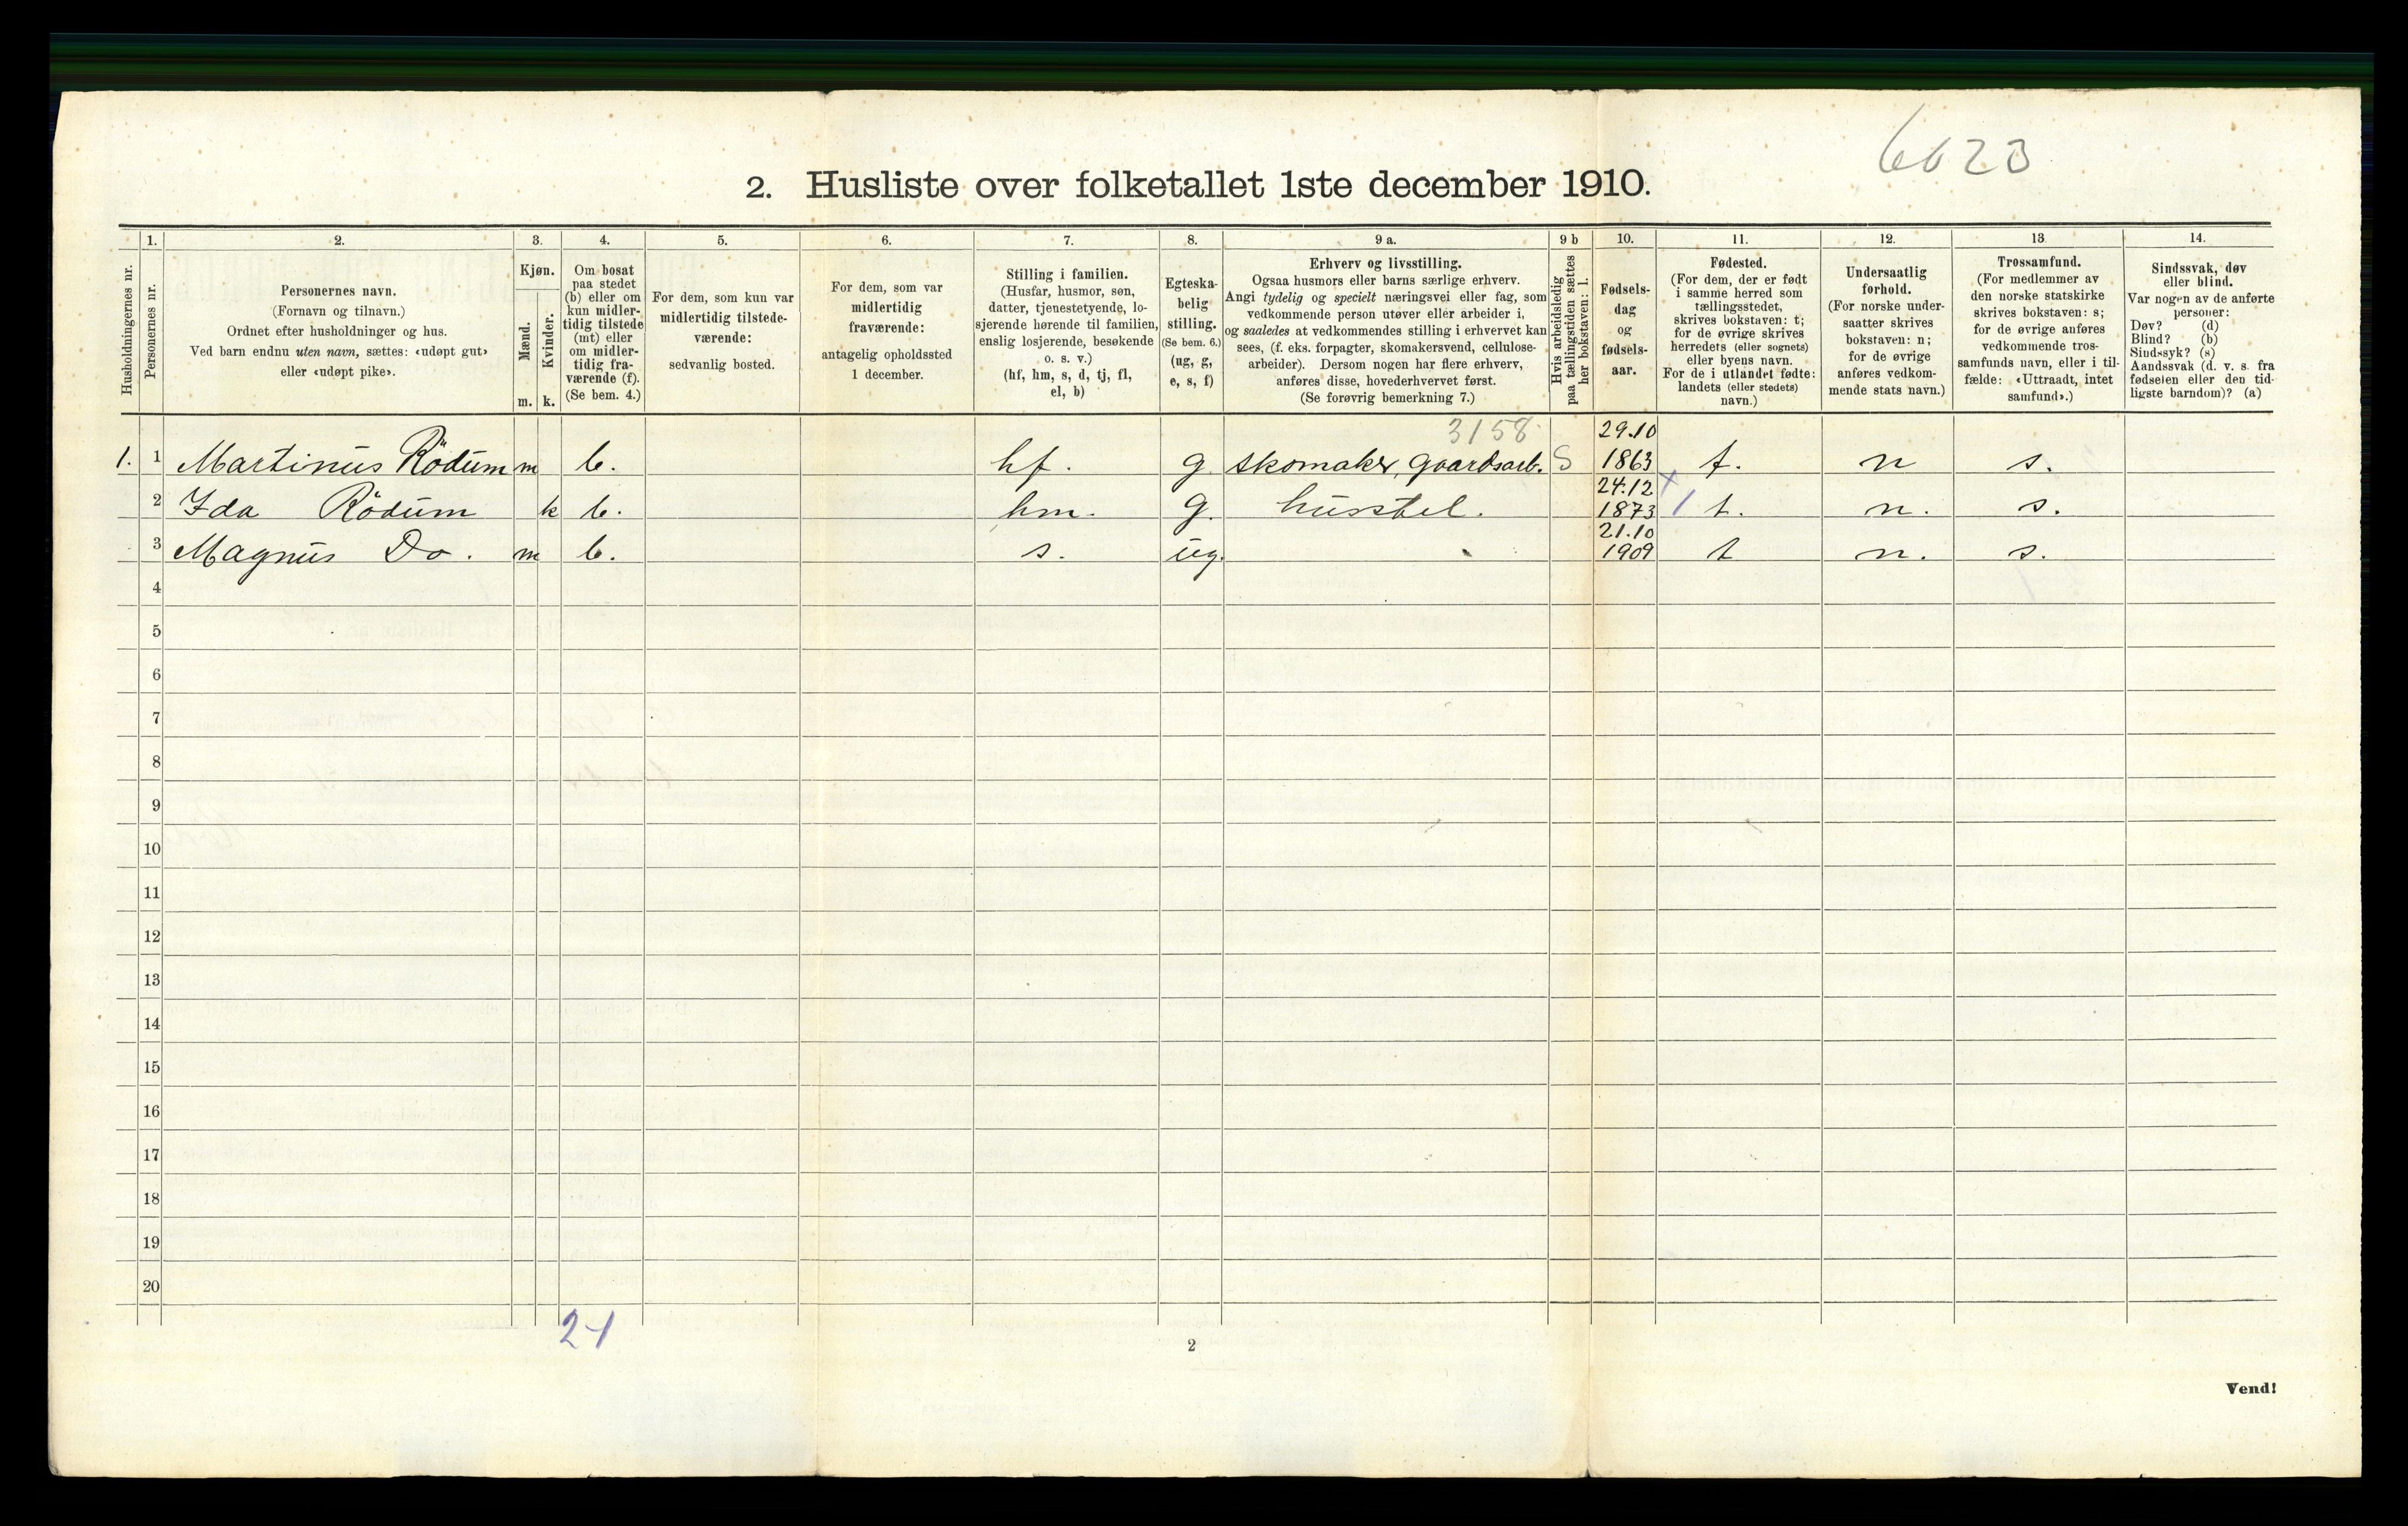 6623
2. Husliste over folketallet 1ste december 1910.
Husholdningernes nr.
1.
Personernes nr.
2.
Personernes navn.
(Fornavn og tilnavn.)
Ordnet efter husholdninger og hus.
Ved barn endnu uten navn, sættes: «udøpt gut»
eller «udøpt pike».
3.
Kjøn.
Mænd.
Kvinder.
m. k.
4.
Om bosat
paa stedet
(b) eller om
kun midler-
tidig tilstede
(mt) eller
om midler-
tidig fra-
værende (f).
(Se bem. 4.)
5.
For dem, som kun var
midlertidig tilstede-
værende:
sedvanlig bosted.
6.
For dem, som var
midlertidig
fraværende:
antagelig opholdssted
1 december.
7.
Stilling i familien.
(Husfar, husmor, søn,
datter, tjenestetyende, lo-
sjerende hørende til familien,
enslig losjerende, besøkende
o. s. v.)
(hf, hm, s, d, tj, fl,
el, b)
8.
Egteska-
belig
stilling.
(Se bem. 6.)
(ug, g,
e, s, f)
9 a.
Erhverv og livsstilling.
Ogsaa husmors eller barns særlige erhverv.
Angi tydelig og specielt næringsvei eller fag, som
vedkommende person utøver eller arbeider i,
og saaledes at vedkommendes stilling i erhvervet kan
sees, (f. eks. forpagter, skomakersvend, cellulose-
arbeider). Dersom nogen har flere erhverv,
anføres disse, hovederhvervet først.
(Se forøvrig bemerkning 7.)
9 b
Hvis arbeidsledig
paa tællingstiden sættes
her bokstaven: l.
10.
Fødsels-
dag
og
fødsels-
aar.
11.
Fødested.
(For dem, der er født
i samme herred som
tællingsstedet,
skrives bokstaven: t;
for de øvrige skrives
herredets (eller sognets)
eller byens navn.
For de i utlandet fødte:
landets (eller stedets)
navn.)
12.
Undersaatlig
forhold.
(For norske under-
saatter skrives
bokstaven: n;
for de øvrige
anføres vedkom-
mende stats navn.)
13
Trossamfund.
(For medlemmer av
den norske statskirke
skrives bokstaven: s;
for de øvrige anføres
vedkommende tros-
samfunds navn, eller i til-
fælde: «Uttraadt, intet
samfund».)
14.
Sindssvak, døv
eller blind.
Var nogen av de anførte
personer:
Døv? (d)
Blind? (b)
Sindssyk? (s)
Aandssvak (d. v. s. fra
fødselen eller den tid-
ligste barndom)? (a)
3158 29.10
1. 1 Martinus Rödum m b. hf. g. skomaker, gaardsarb. S 1863 t. n s.
24.12
2 Ida Rödum k b. hm. g. husstel. 1873 t. n. s.
21.10
3 Magnus Do. m b. s. ug. 1909 t n. s.
4
5
6
7
8
9
10
11
12
13
14
15
16
17
18
19
20
2-1
2
Vend!